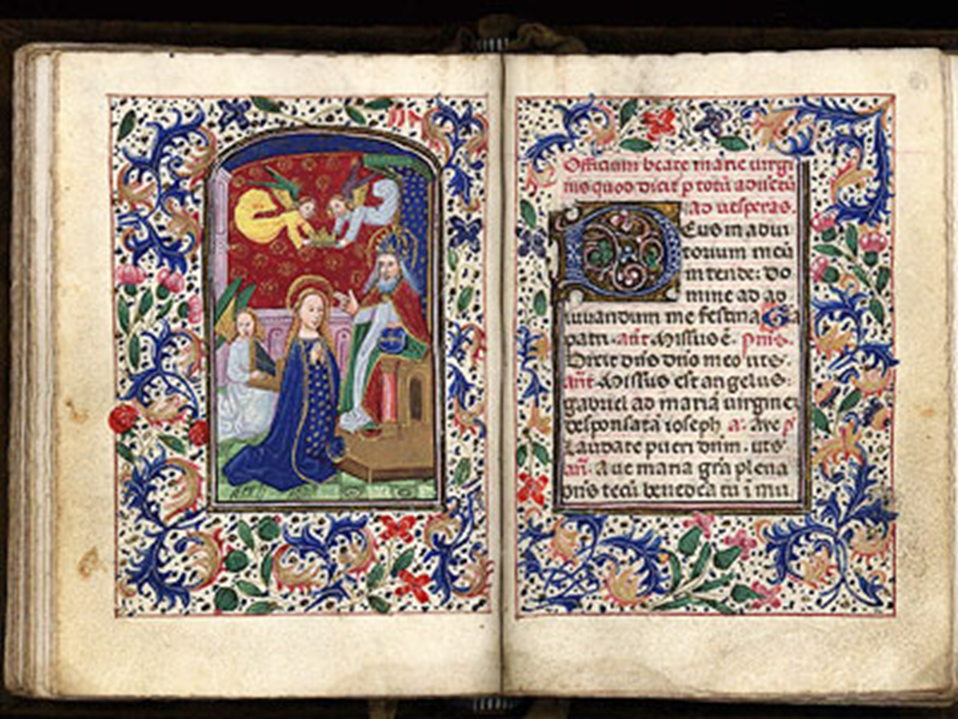 Officium beate marie virgi
nis quod dicit p totū adventū
ad vesperas.
Deus in adiu
torium meū
intende: Do
mine ad ad
iuvandum me festina Gła
patri. añt. Missus ē. pmš.
Dixit dñs dño meo uts.
añt. Missus est angelus:
gabriel ad mariā virginē
desponsatā ioseph a: Ave p̄
Laudate pueri dñm. uts.
añ. Ave maria grā plena
dn̄s tecū benedcā tu ī mu